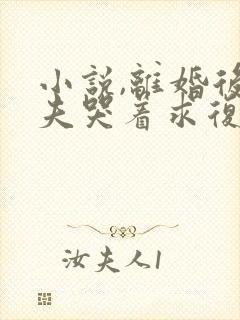 小説,離婚後
夫哭着求復
汝夫人1